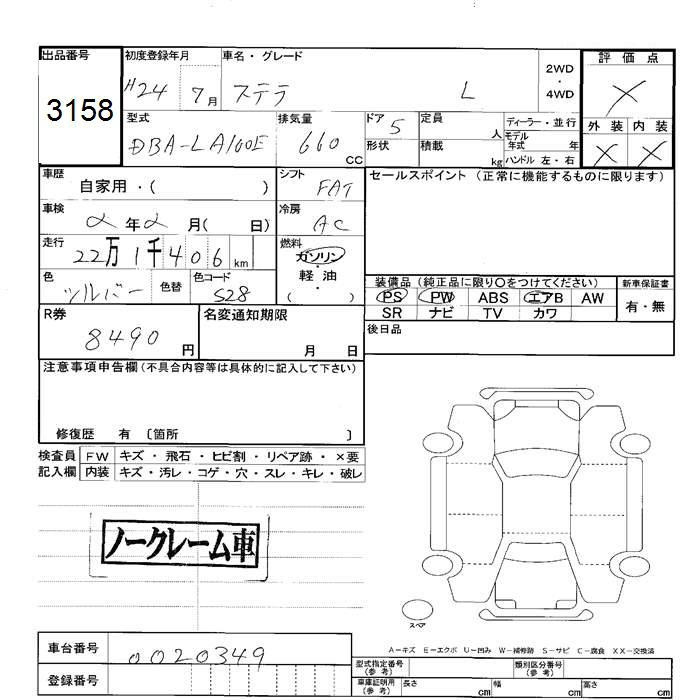 出品番号 初度登録年月 車名・グレード 2WD・4WD 評価点
3158 H24 7月 ステラ L ×
型式 排気量 ドア 5 定員 人 ディーラー・並行 外装 内装
DBA-LA100F 660 CC 形状 積載 kg モデル年式 年 × ×
ハンドル 左・右
車歴 シフト セールスポイント (正常に機能するものに限ります)
自家用・( ) FAT
車検 冷房
2年2月( 日) AC
走行 燃料
22万1千406km ガソリン
色 色替 色コード ・軽油
シルバー S28 ( )
装備品 (純正品に限り○をつけてください) 新車保証書
PS PW ABS エアB AW 有・無
SR ナビ TV カワ
R券 名変通知期限 後日品
8490円 月 日
注意事項申告欄 (不具合内容等は具体的に記入して下さい)
修復歴 有 〔箇所 〕
検査員 FW キズ・飛石・ヒビ割・リペア跡・×要
記入欄 内装 キズ・汚レ・コゲ・穴・スレ・キレ・破レ
ノークレーム車
スペア
A-キズ E-エクボ U-凹み W-補修跡 S-サビ C-腐食 XX-交換済
車台番号 0020349
登録番号
型式指定番号(参考) 類別区分番号(参考)
車庫証明用(参考) 長さ cm 幅 cm 高さ cm